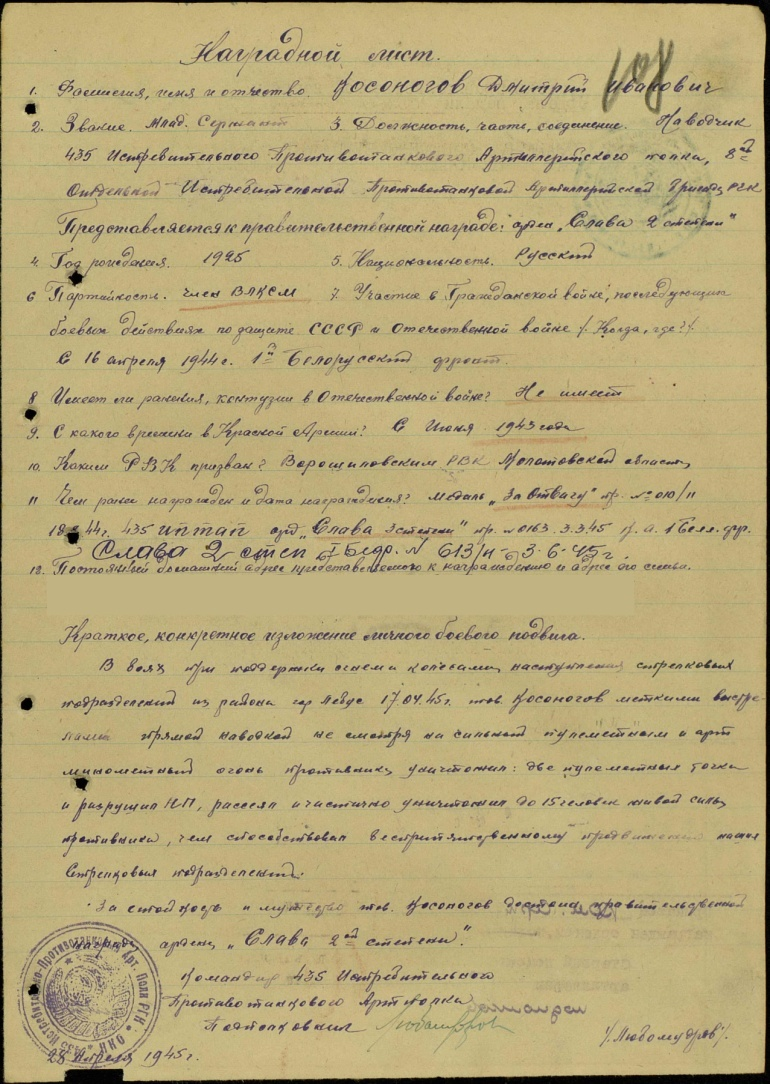 108
Наградной лист.
1. Фамилия, имя и отчество. Косоногов Дмитрий Иванович
2. Звание. Млад. Сержант 3. Должность, часть, соединение. Наводчик
435 Истребительного Противотанкового Артиллерийского полка, 8ой
Отдельной Истребительной Противотанковой Артиллерийской Бригады РГК
Представляется к правительственной награде: орден „Слава 2 степени"
4. Год рождения. 1925 5. Национальность. Русский
6 Партийность. член ВЛКСМ 7. Участие в Гражданской войне, последующих
боевых действиях по защите СССР и Отечественной войне /Когда, где?/
С 16 апреля 1944 г. 1й Белорусский фронт.
8 Имеет ли ранения, контузии в Отечественной войне? Не имеет
9. С какого времени в Красной Армии? С Июня 1943 года
10. Каким РВК призван? Ворошиловским РВК Молотовской области
11 Чем ранее награжден и дата награждения? медаль „За Отвагу" пр. № 010/н
44г. 435 иптап орд „Слава 3 степени" пр. № 0163 3.3.45 1 Бел. фр.
Слава 2 степ 1 Б № 613/н - 3.6.45 г
12. Постоянный домашний адрес представляемого к награждению и адрес его семьи.
Краткое, конкретное изложение личного боевого подвига.
В боях при поддержки огнем и колесами наступления стрелковых
подразделений из района гор Лебус 17.04.45г. тов. Косоногов меткими выстре-
лами прямой наводкой не смотря на сильный пулеметный и арт
минометный огонь противника уничтожил: две пулеметных точки
и разрушил НП, рассеял и частично уничтожил до 15 человек живой силы
противника, чем способствовал беспрепятственному продвижению наших
Стрелковых подразделений.
За стойкость и мужество тов. Косоногов достоин правительственной
награды ордена „Слава 2ой степени".
Командир 435 Истребительного
Противотанкового Артполка
Подполковник /Любомудров/.
28 Апреля 1945г.